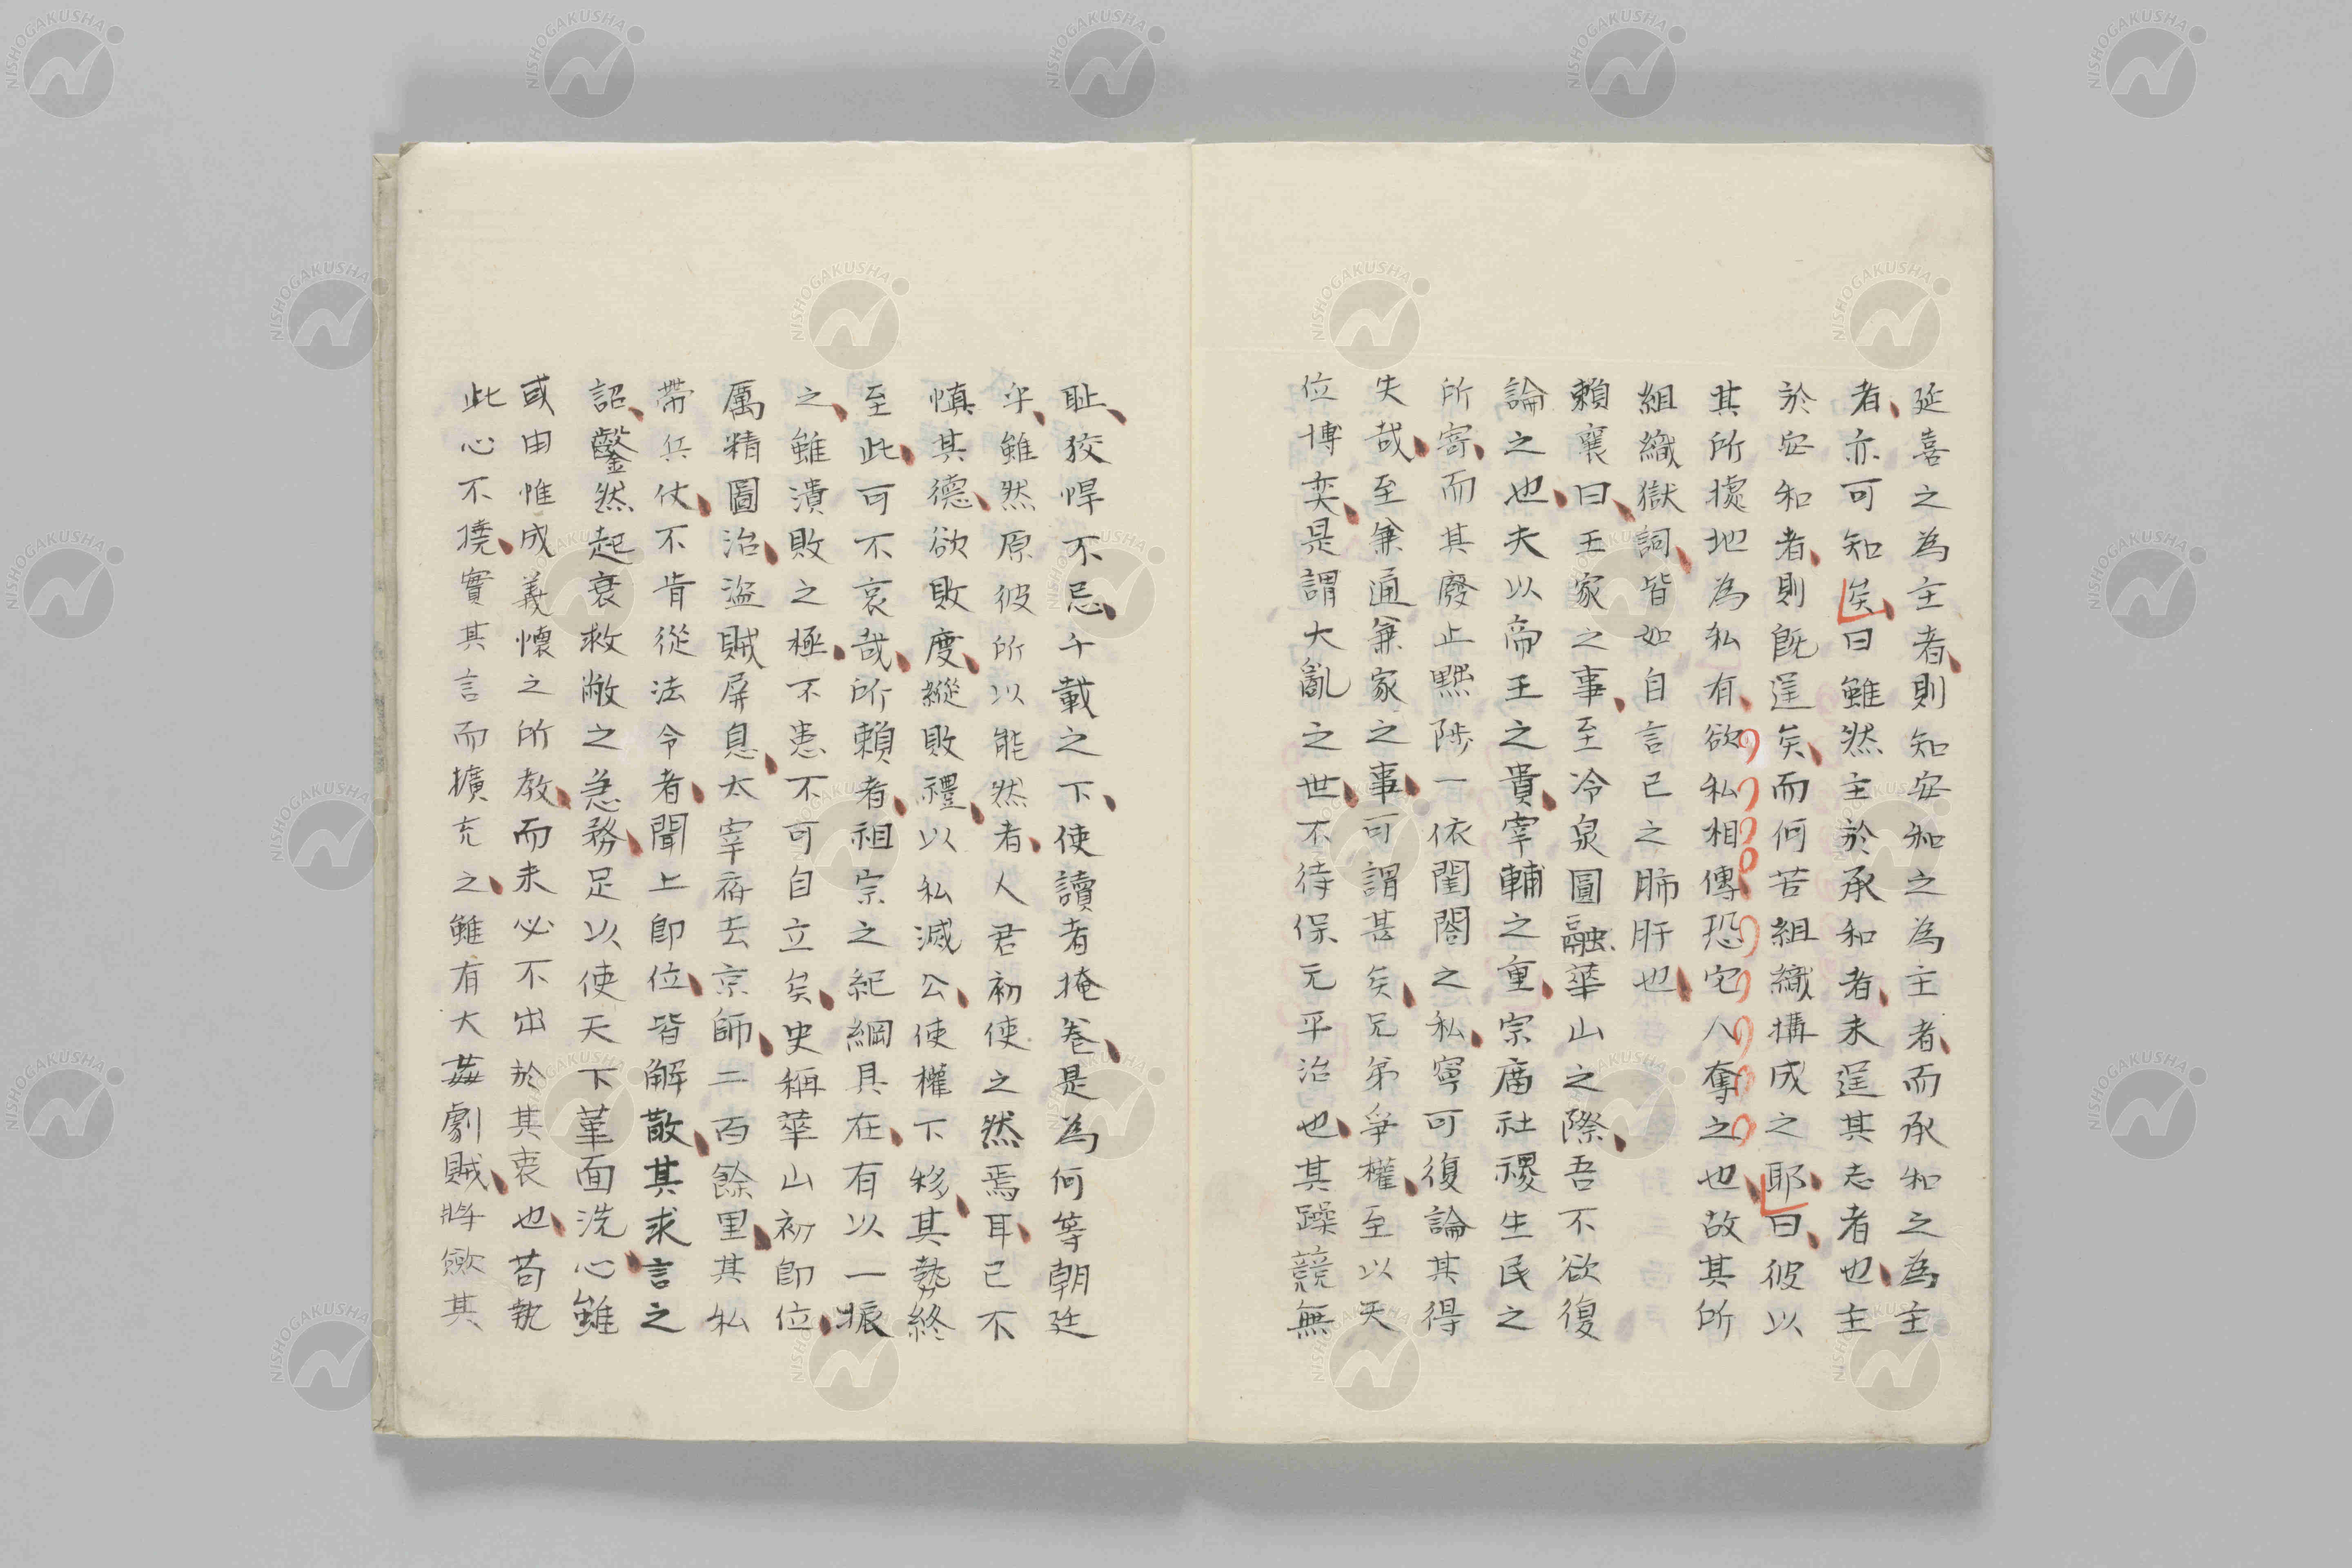 延喜之為主者則知安和之為主者而承和之為主
者亦可知矣曰雖然主於承和者未逞其志者也主
於安和者則既逞矣而何苦組織搆成之耶曰彼以
其所據地為私有欲私相傳恐它人奪之也故其所
組織獄詞皆如自言已之肺肝也
賴襄曰王家之事至冷泉圓融華山之際吾不欲復
論之也夫以帝王之貴宰輔之重宗庿社禝生民之
所寄而其廢止黜陟一依閨閤之私寧可復論其得
失哉至兼通兼家之事可謂甚矣兄弟爭權至以天
位博奕是謂大亂之世不待保元平治也其躁競無
耻狡悍不忌千載之下使讀者掩卷是為何等朝廷
乎雖然原彼所以能然者人君初使之然焉耳已不
慎其德欲敗度縱敗禮以私滅公使權下移其勢終
至此可不哀哉所賴者祖宗之紀綱具在有以一振
之雖潰敗之極不患不可自立矣史稱華山初即位
厲精圖治盜賊屏息太宰府去京師二百餘里其私
帶兵仗不肯從法令者聞上即位皆解散其求言之
詔鑿然起衰救敝之急務足以使天下革面洗心雖
或由惟成義懷之所教而未必不出於其衷也苟執
此心不撓實其言而擴充之雖有大姦劇賊將斂其